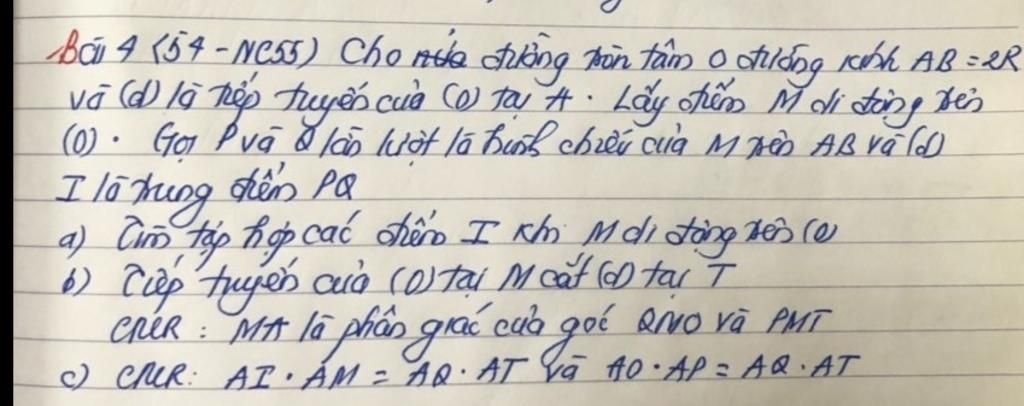 Bài 4 (54-NC55) Cho nửa đường tròn tâm O đường kính AB = 2R
và (d) là tiếp tuyến của (O) tại A. Lấy điểm M di động trên
(O). Gọi P và Q lần lượt là hình chiếu của M trên AB và (d)
I là trung điểm PQ
a) Tìm tập hợp các điểm I khi M di động trên (O)
b) Tiếp tuyến của (O) tại M cắt (d) tại T
CMR: MA là phân giác của góc QMO và PMT
c) CMR: AI . AM = AQ . AT và AO . AP = AQ . AT